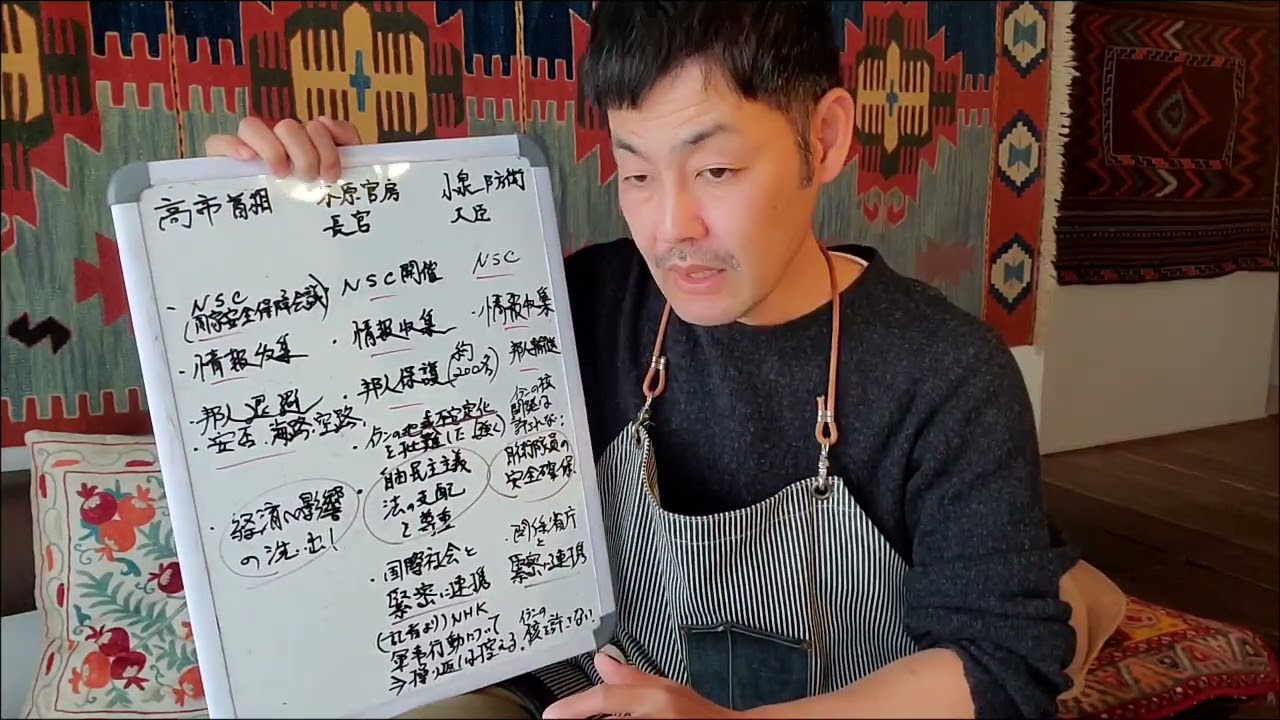 高市首相
木原官房
長官
小泉防衛
大臣
・NSC
(国家安全保障会議)
・情報収集
・邦人退避
・安否.海路.空路.
・経済への影響
の洗い出し!
NSC開催
・情報収集
・邦人保護(約200名)
・イランの地域不安定化
を批難した(強く)
・自由民主主義
法の支配
を尊重
・国際社会と
緊密に連携
(記者より)NHK
軍事行動について
NSC
・情報収集
邦人輸送
イランの核
開発は
許されない!
自衛隊員の
安全確保
・関係省庁
と
緊密に連携
イランの
核を許さない!